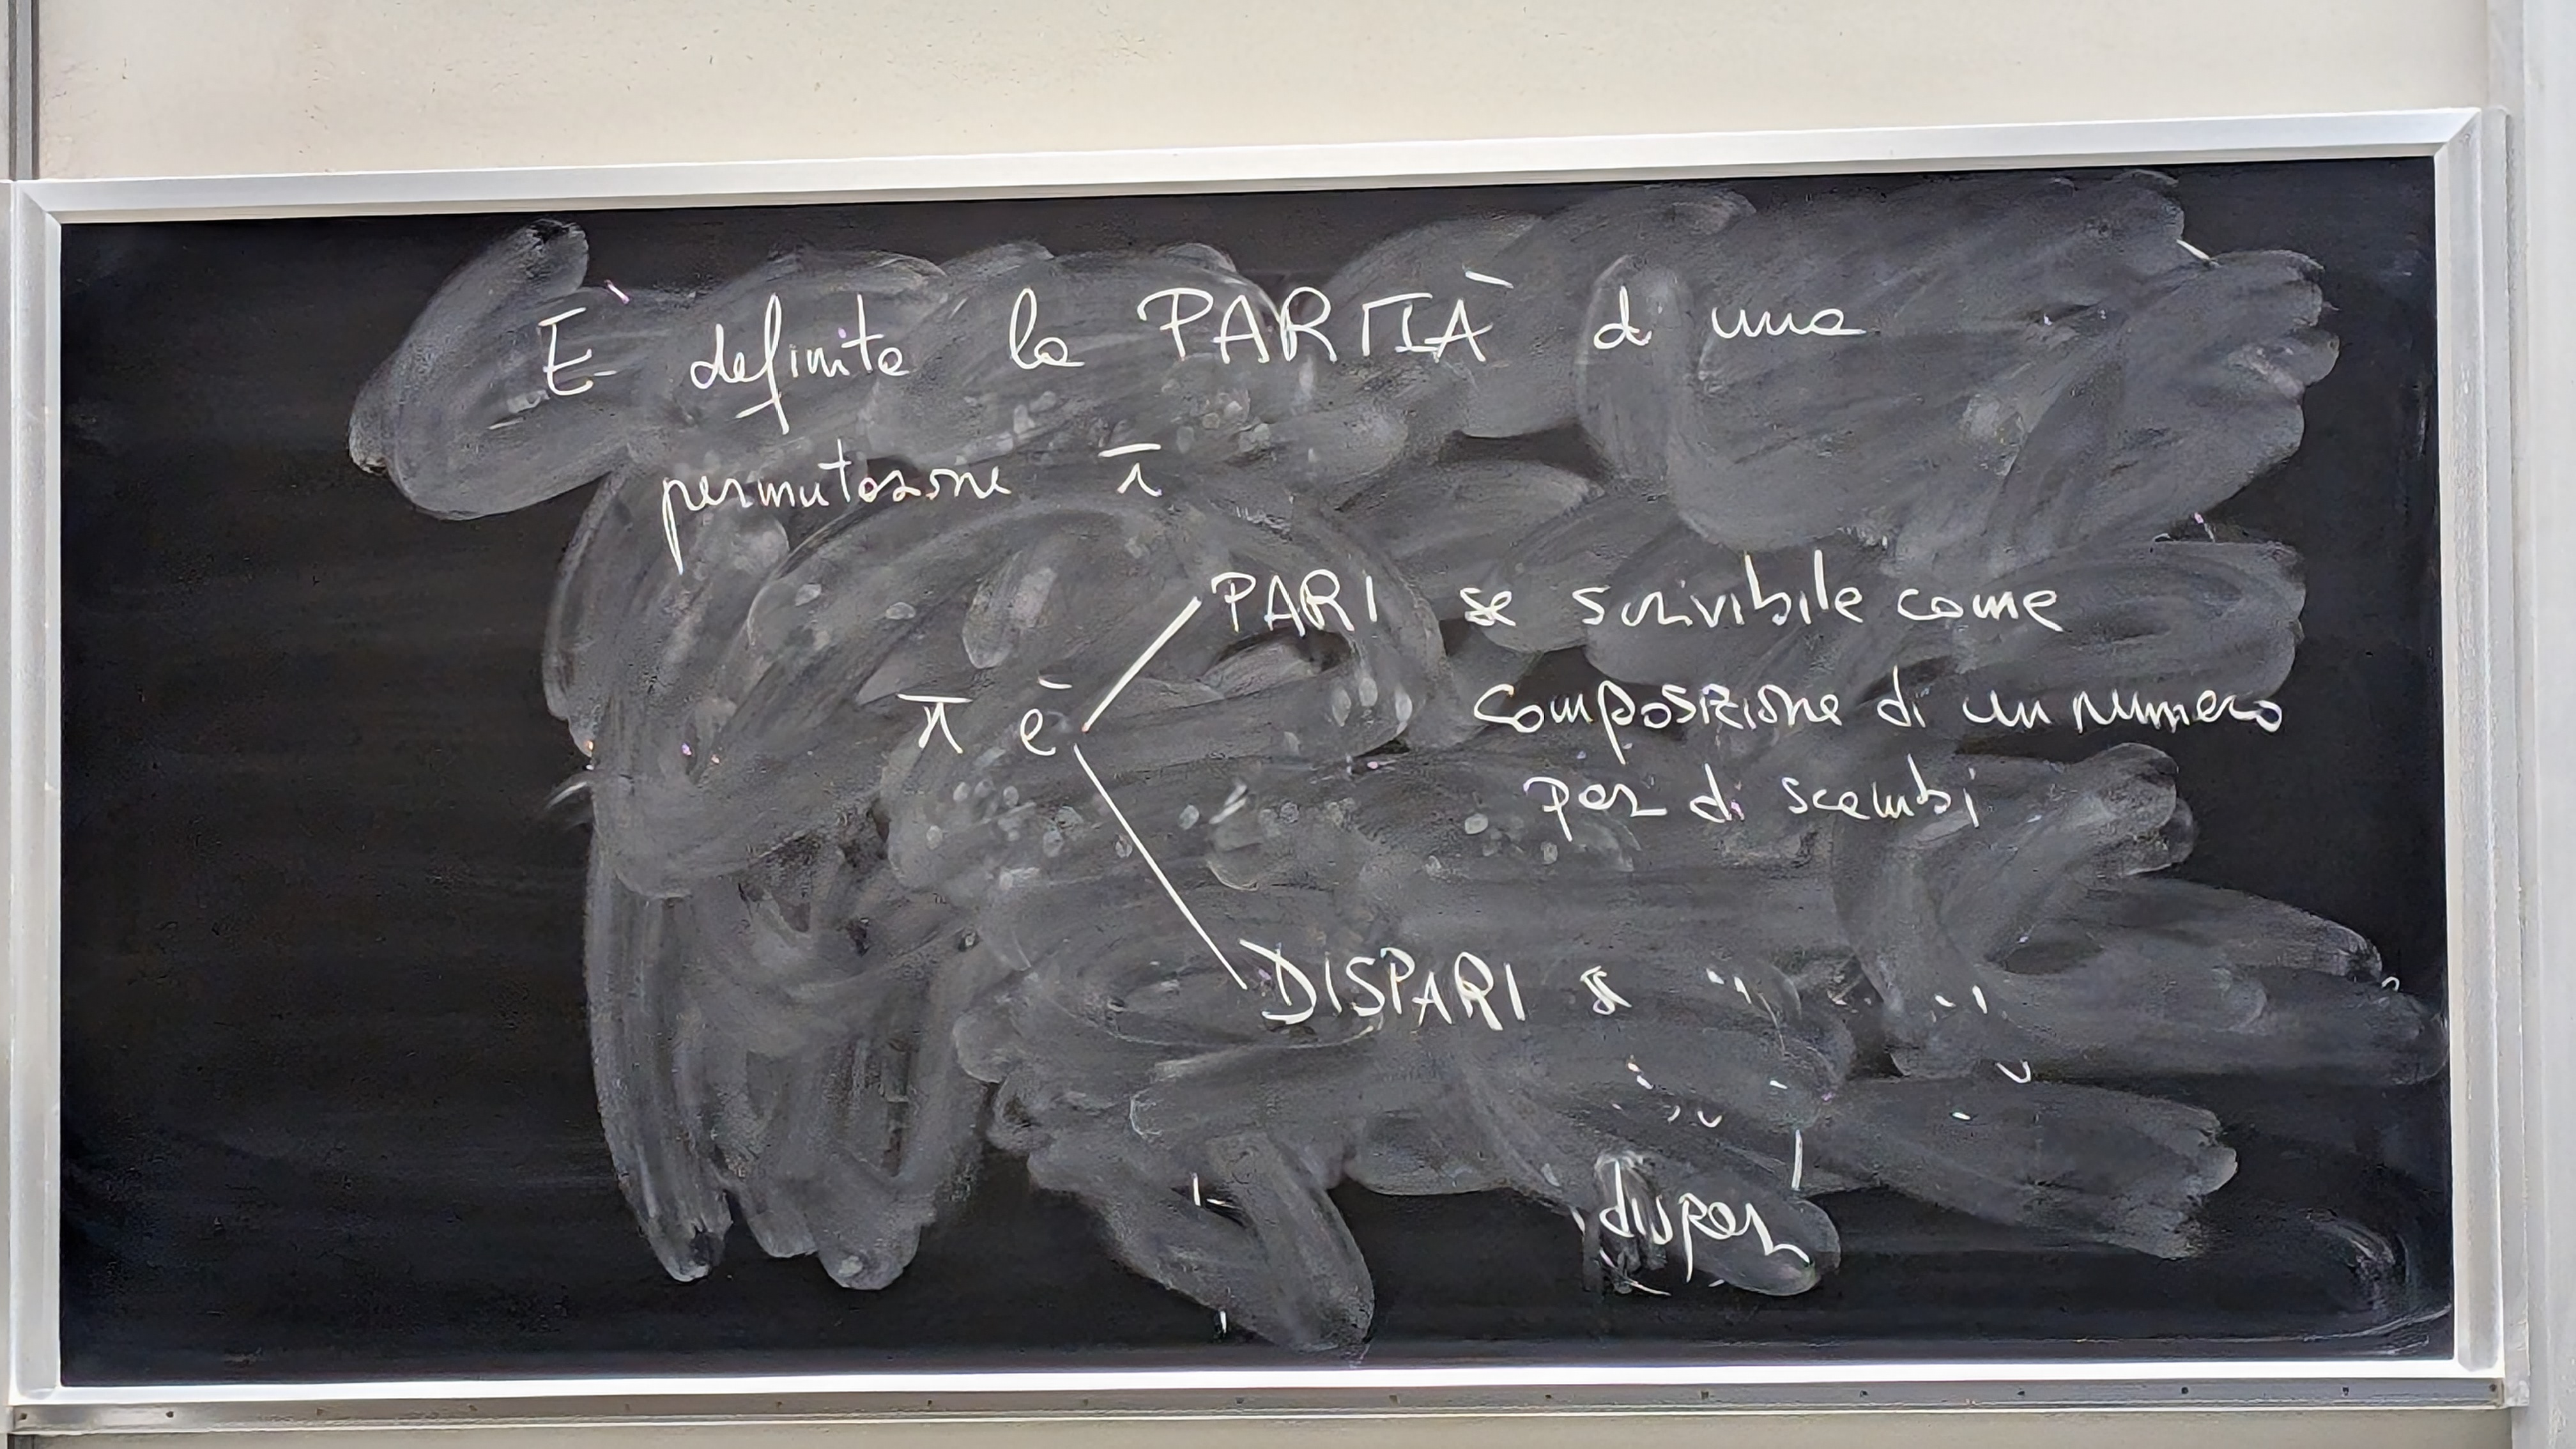 È definita la PARITÀ di una
permutazione π
PARI se scrivibile come
π è
composizione di un numero
pari di scambi
DISPARI se " "
" "
dispari